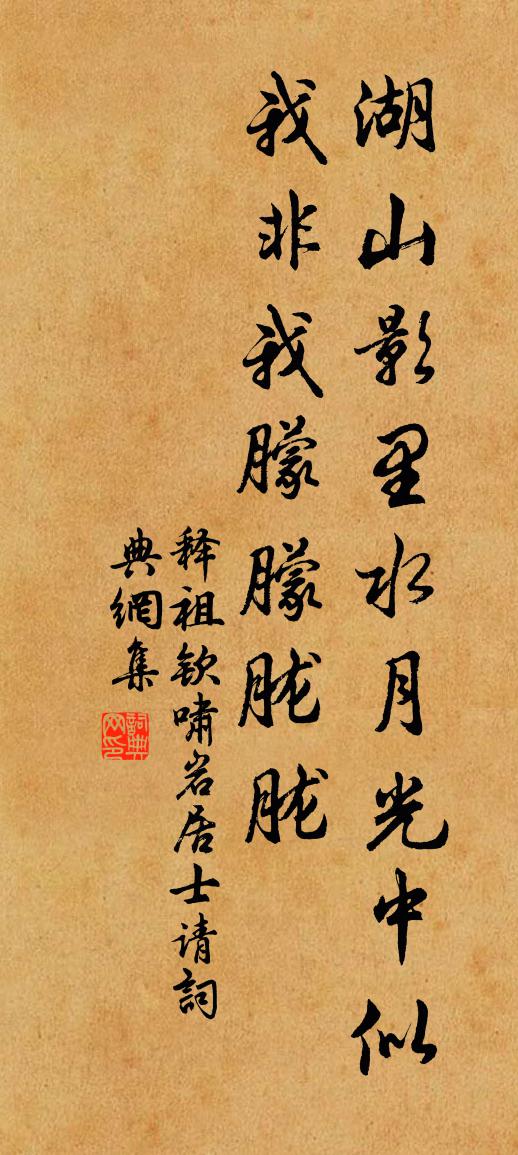 湖山影里水月光中似
我非我朦朦胧胧
释祖钦啸岩居士请詞
典網集
詞典網印